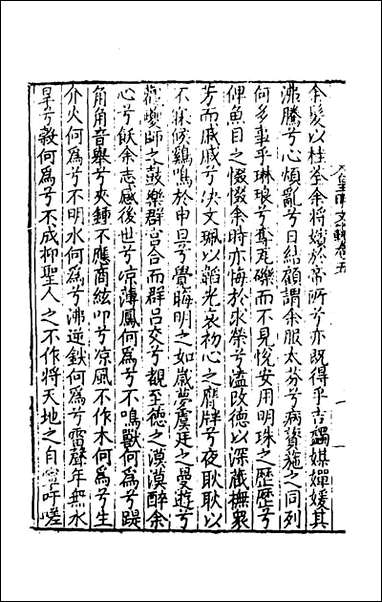 文卷五
余髮以桂荃余將嬪於帝所兮亦既得乎吉蠲媒嬋媛其
沸騰兮心煩亂兮日結顧謂余服太芬兮病薋葹之同列
何多事乎琳琅兮奪瓦礫而不見悅安用明珠之歷歷兮
伸魚目之惙惙余時亦悔於求榮兮溘改德以深藏撫眾
芳而戚戚兮文珮以韜光哀初心之兮夜耿耿以
不寐候鷄鳴於申旦兮覺晦明之如歲夢虞廷之曼遊兮
觀夔師之鼓樂群宮合而群呂交兮覩至德之漠漠醉余
心兮飫余志感後世兮凉薄鳳何為兮不鳴獸何為兮踶
角角音舉兮夾鍾不應商絃叩兮凉風不作木何為兮生
介火何為兮不明水何為兮沸逆鈇何為兮雷聲年無水
旱兮穀何為兮不成抑聖人之不作將天地之自寧吁嗟